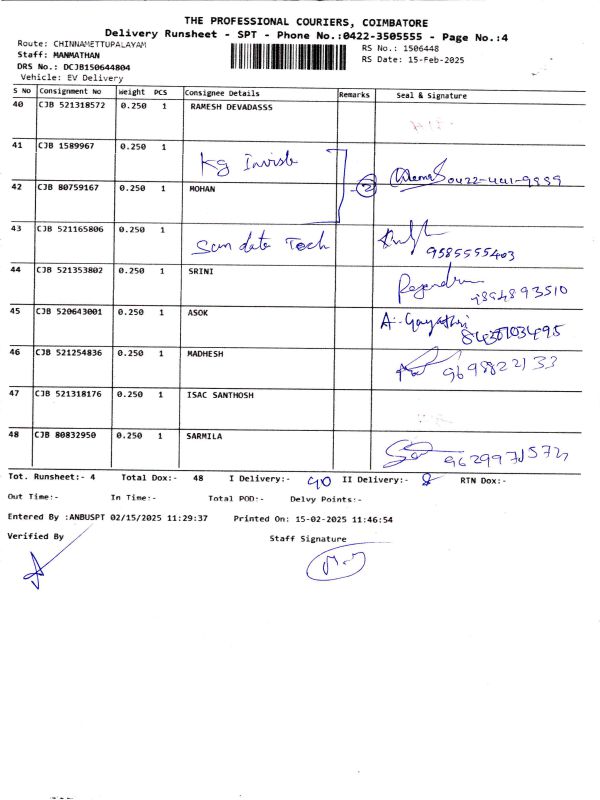 THE PROFESSIONAL COURIERS, COIMBATORE
Delivery Runsheet - SPT - Phone No.:0422-3505555 - Page No.:4
Route: CHINNAMETTUPALAYAM
Staff: MANMATHAN
DRS No.: DCJB150644804
Vehicle: EV Delivery
RS No.: 1506448
RS Date: 15-Feb-2025
S No Consignment No Weight PCS Consignee Details Remarks Seal & Signature
40 CJB 521318572 0.250 1 RAMESH DEVADASSS
41 CJB 1589967 0.250 1
Kg
42 CJB 80759167 0.250 1 MOHAN 2 0422-441-9999
43 CJB 521165806 0.250 1
Tech 9585555403
44 CJB 521353802 0.250 1 SRINI
Rajendran 9894893510
45 CJB 520643001 0.250 1 ASOK A. Gayathri
8430703495
46 CJB 521254836 0.250 1 MADHESH 9698822133
47 CJB 521318176 0.250 1 ISAC SANTHOSH
48 CJB 80832950 0.250 1 SARMILA
Tot. Runsheet:- 4 Total Dox:- 48 I Delivery:- 40 II Delivery:- 8 RTN Dox:-
Out Time:- In Time:- Total POD:- Delvy Points:-
Entered By :ANBUSPT 02/15/2025 11:29:37 Printed On: 15-02-2025 11:46:54
Verified By Staff Signature